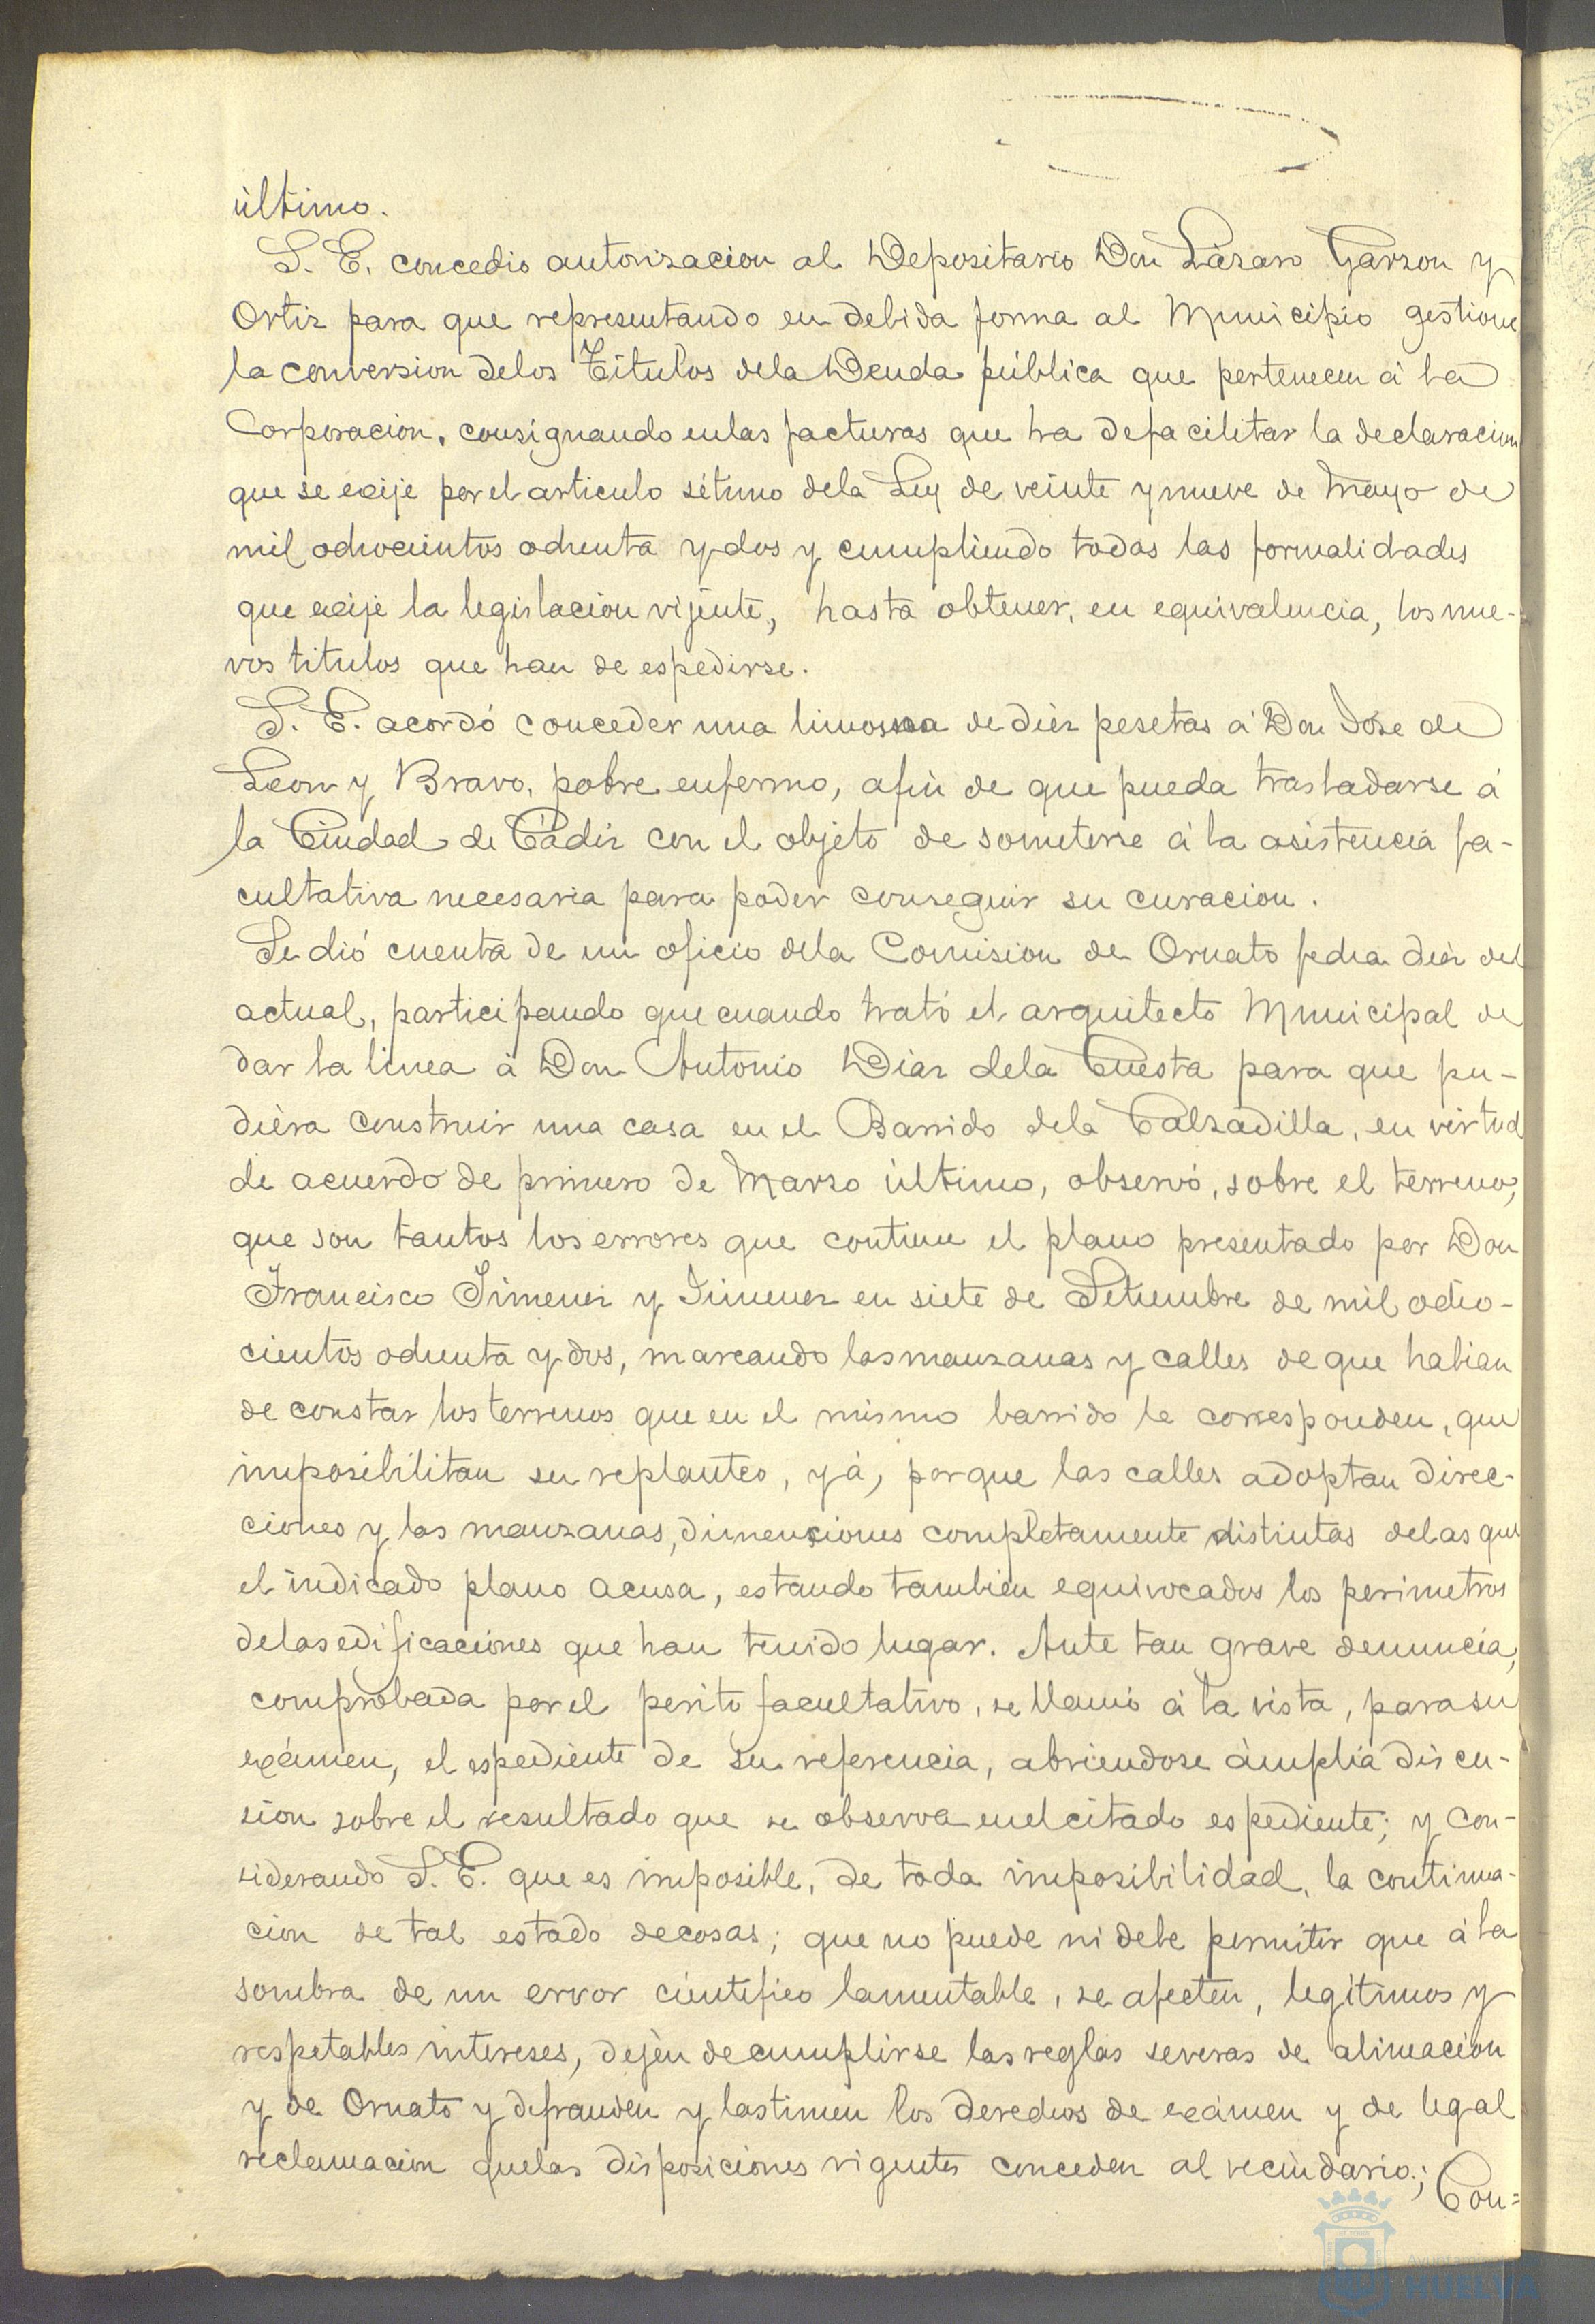 último.
S. E. concedió autorizacion al Depositario Don Lázaro Garzon y
Ortiz para que representando en debida forma al Municipio gestione
la conversion delos Títulos dela Deuda pública que pertenecen á la
Corporacion, consignando enlas facturas que ha defacilitar la declaracion
que se exije por el articulo sétimo dela Ley de veinte y nueve de Mayo de
mil ochocientos ochenta y dos y cumpliendo todas las formalidades
que exije la legislacion vijente, hasta obtener, en equivalencia, los nue-
vos titulos que han de espedirse.
S. E. acordó conceder una limosna de diez pesetas á Don José de
Leon y Bravo, pobre enfermo, afin de que pueda trasladarse á
la Ciudad de Cádiz con el objeto de someterse á la asistencia fa-
cultativa necesaria para poder conseguir su curacion.
Se dió cuenta de un oficio dela Comision de Ornato fecha diez del
actual, participando que cuando trató el arquitecto Municipal de
dar la linea á Don Antonio Diaz dela Cuesta para que pu-
diera construir una casa en el Barrido dela Calzadilla, en virtud
de acuerdo de primero de Marzo último, observó, sobre el terreno,
que son tantos los errores que contiene el plano presentado por Don
Francisco Jimenez y Jimenez en siete de Setiembre de mil ocho-
cientos ochenta y dos, marcando las manzanas y calles de que habian
de constar los terrenos que en el mismo barrido le corresponden, que
imposibilitan su replanteo, yá, porque las calles adoptan direc-
ciones y las manzanas, dimensiones completamente distintas delas que
el indicado plano acusa, estando tambien equivocados los perimetros
delas edificaciones que han tenido lugar. Ante tan grave denuncia,
comprobada por el perito facultativo, se llamó á la vista, para su
exámen, el espediente de su referencia, abriendose ámplia discu-
sion sobre el resultado que se observa enel citado espediente; y con-
siderando S. E. que es imposible, de toda imposibilidad, la continua-
cion de tal estado decosas; que no puede ni debe permitir que á la
sombra de un error cientifico lamentable, se afecten, legítimos y
respetables intereses, dejen decumplirse las reglas severas de alineacion
y de Ornato y defrauden y lastimen los derechos de exámen y de legal
reclamacion quelas disposiciones vigentes conceden al vecindario; Con=
HUELVA